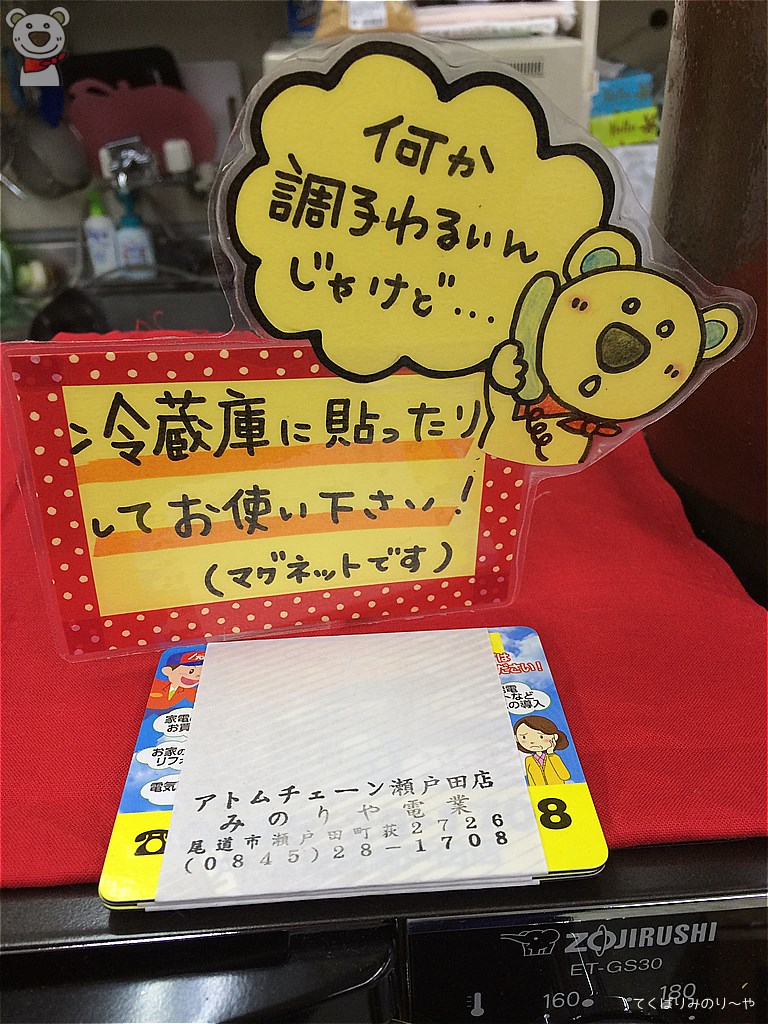 何か
調子わるいん
じゃけど...
冷蔵庫に貼ったり
してお使い下さい!
(マグネットです)
は
ださい!
家電
お買
お家の
リフォ
電気
電
トなど
の導入
☎
8
アトムチェーン瀬戸田店
みのりや電業
尾道市瀬戸田町荻2726
(0845)28-1708
ZOJIRUSHI
ET-GS30
160
180
てくばりみのり〜や